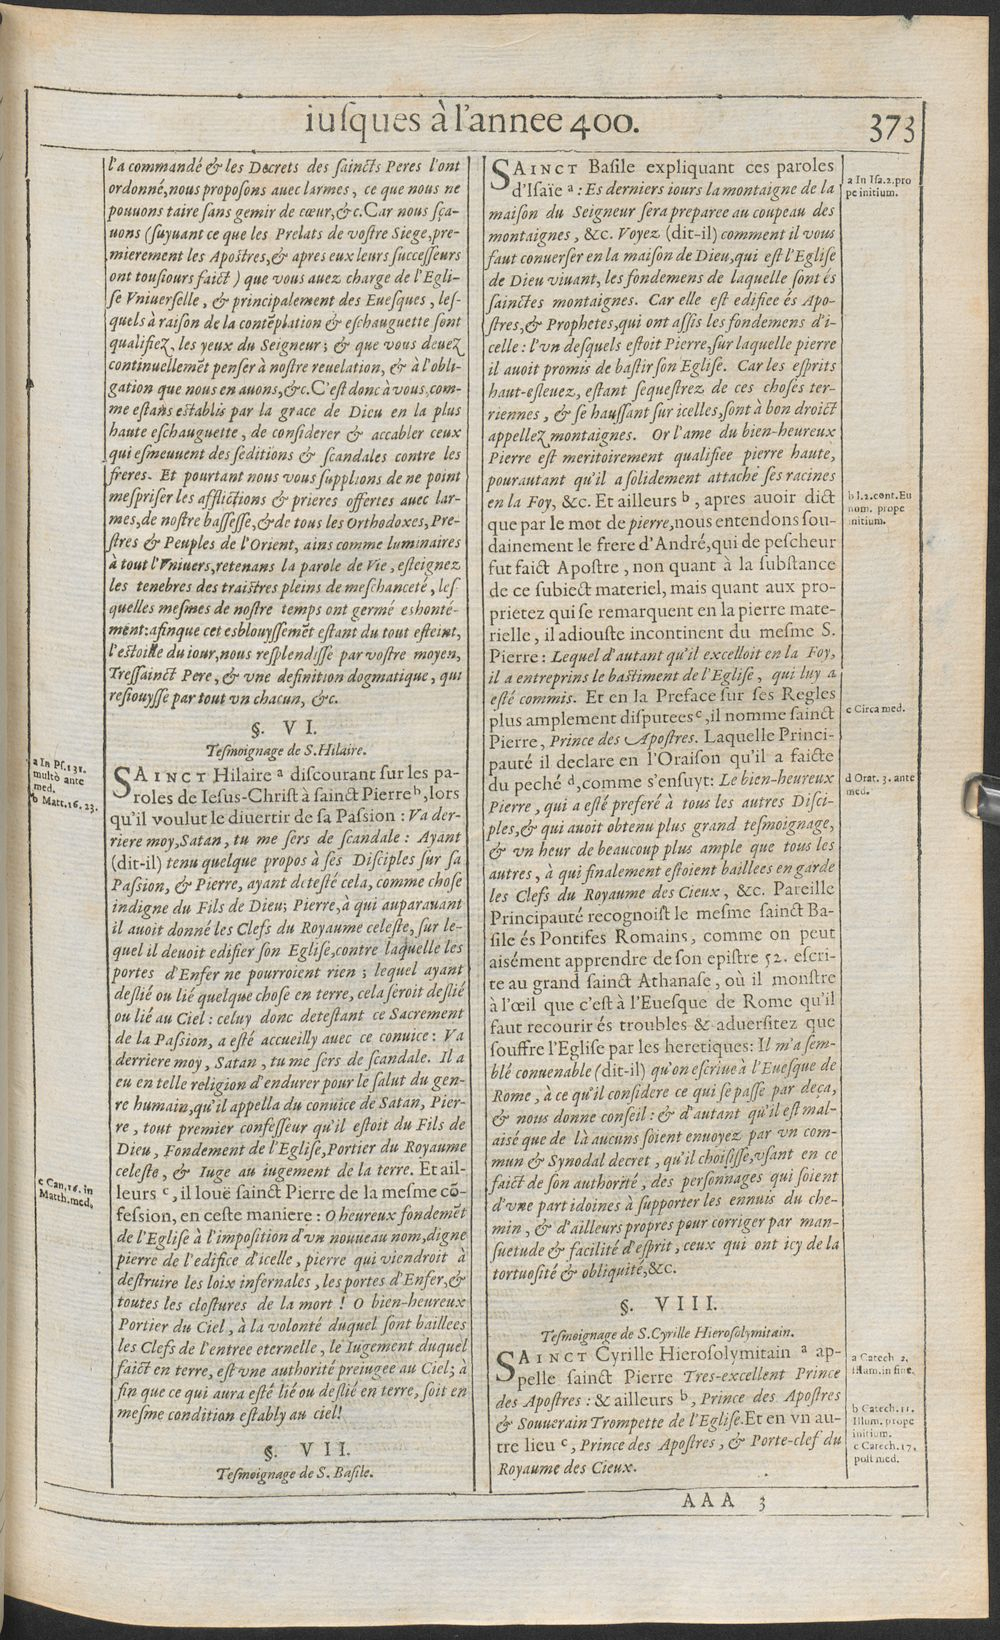 iuſques à l'annee 400. 373
l'a commandé & les Decrets des ſaincts Peres l'ont
ordonné, nous propoſons auec larmes, ce que nous ne
pouuons taire ſans gemir de cœur, &c. Car nous ſça-
uons (ſuyuant ce que les Prelats de voſtre Siege, pre-
mierement les Apoſtres, & apres eux leurs ſucceſſeurs
ont touſiours faict) que vous auez charge de l'Egli-
ſe Vniuerſelle, & principalement des Eueſques, leſ-
quels à raiſon de la contẽplation & eſchauguette ſont
qualifiez, les yeux du Seigneur; & que vous deuez
continuellemẽt penſer à noſtre reuelation, & à l'obli-
gation que nous en auons, &c. C'eſt donc à vous, com-
me eſtans eſtablis par la grace de Dieu en la plus
haute eſchauguette, de conſiderer & accabler ceux
qui eſmeuuent des ſeditions & ſcandales contre les
freres. Et pourtant nous vous ſupplions de ne point
meſpriſer les afflictions & prieres offertes auec lar-
mes, de noſtre baſſeſſe, & de tous les Orthodoxes, Pre-
ſtres & Peuples de l'Orient, ains comme luminaires
à tout l'Vniuers, retenans la parole de Vie, eſteignez
les tenebres des traiſtres pleins de meſchanceté, leſ
quelles meſmes de noſtre temps ont germé eshonté-
mẽnt: afinque cet esblouyſſemẽt eſtant du tout eſteint,
l'eſtoille du iour, nous reſplendiſſe par voſtre moyen,
Treſſainct Pere, & vne definition dogmatique, qui
reſiouyſſe par tout vn chacun, &c.
§. VI.
Teſmoignage de S. Hilaire.
a In Pſ. 131.
multò ante
med.
b Matt. 16. 23.
SAINCT Hilaire a diſcourant ſur les pa-
roles de Ieſus-Chriſt à ſainct Pierre b, lors
qu'il voulut le diuertir de ſa Paſsion : Va der-
riere moy, Satan, tu me ſers de ſcandale : Ayant
(dit-il) tenu quelque propos à ſes Diſciples ſur ſa
Paſsion, & Pierre, ayant deteſté cela, comme choſe
indigne du Fils de Dieu; Pierre, à qui auparauant
il auoit donné les Clefs du Royaume celeſte, ſur le-
quel il deuoit edifier ſon Egliſe, contre laquelle les
portes d'Enfer ne pourroient rien ; lequel ayant
deſlié ou lié quelque choſe en terre, cela ſeroit deſlié
ou lié au Ciel : celuy donc deteſtant ce Sacrement
de la Paſsion, a eſté accueilly auec ce conuice : Va
derriere moy, Satan, tu me ſers de ſcandale. Il a
eu en telle religion d'endurer pour le ſalut du gen-
re humain, qu'il appella du conuice de Satan, Pier-
re, tout premier confeſſeur qu'il eſtoit du Fils de
Dieu, Fondement de l'Egliſe, Portier du Royaume
celeſte, & Iuge au iugement de la terre. Et ail-
c Can. 16. in
Matth. med.
leurs c, il louë ſainct Pierre de la meſme cõ-
feſsion, en ceſte maniere : O heureux fondemẽt
de l'Egliſe à l'impoſition d'vn nouueau nom, digne
pierre de l'edifice d'icelle, pierre qui viendroit à
deſtruire les loix infernales, les portes d'Enfer, &
toutes les cloſtures de la mort ! O bien-heureux
Portier du Ciel, à la volonté duquel ſont baillees
les Clefs de l'entree eternelle, le Iugement duquel
faict en terre, eſt vne authorité preiugee au Ciel; à
fin que ce qui aura eſté lié ou deſlié en terre, ſoit en
meſme condition eſtably au ciel!
§. VII.
Teſmoignage de S. Baſile.
SAINCT Baſile expliquant ces paroles
d'Iſaïe a : Es derniers iours la montaigne de la
a In Iſa. 2. pro
pe initium.
maiſon du Seigneur ſera preparee au coupeau des
montaignes, &c. Voyez (dit-il) comment il vous
faut conuerſer en la maiſon de Dieu, qui eſt l'Egliſe
de Dieu viuant, les fondemens de laquelle ſont és
ſainctes montaignes. Car elle eſt edifiee és Apo-
ſtres, & Prophetes, qui ont aſſis les fondemens d'i-
celle : l'vn deſquels eſtoit Pierre, ſur laquelle pierre
il auoit promis de baſtir ſon Egliſe. Car les eſprits
haut-eſleuez, eſtant ſequeſtrez de ces choſes ter-
riennes, & ſe hauſſant ſur icelles, ſont à bon droict
appellez montaignes. Or l'ame du bien-heureux
Pierre eſt meritoirement qualifiee pierre haute,
pourautant qu'il a ſolidement attaché ſes racines
en la Foy, &c. Et ailleurs b, apres auoir dict
b l. 2. cont. Eu
nom. prope
initium.
que par le mot de pierre, nous entendons ſou-
dainement le frere d'André, qui de peſcheur
fut faict Apoſtre, non quant à la ſubſtance
de ce ſubiect materiel, mais quant aux pro-
prietez qui ſe remarquent en la pierre mate-
rielle, il adiouſte incontinent du meſme S.
Pierre : Lequel d'autant qu'il excelloit en la Foy,
il a entreprins le baſtiment de l'Egliſe, qui luy a
eſté commis. Et en la Preface ſur ſes Regles
plus amplement diſputees c, il nomme ſainct
c Circa med.
Pierre, Prince des Apoſtres. Laquelle Princi-
pauté il declare en l'Oraiſon qu'il a faicte
du peché d, comme s'enſuyt: Le bien-heureux
d Orat. 3. ante
med.
Pierre, qui a eſté preferé à tous les autres Diſci-
ples, & qui auoit obtenu plus grand teſmoignage,
& vn heur de beaucoup plus ample que tous les
autres, à qui finalement eſtoient baillees en garde
les Clefs du Royaume des Cieux, &c. Pareille
Principauté recognoiſt le meſme ſainct Ba-
ſile és Pontifes Romains, comme on peut
aisément apprendre de ſon epiſtre 52. eſcri-
te au grand ſainct Athanaſe, où il monſtre
à l'œil que c'eſt à l'Eueſque de Rome qu'il
faut recourir és troubles & aduerſitez que
ſouffre l'Egliſe par les heretiques: Il m'a ſem-
blé conuenable (dit-il) qu'on eſcriue à l'Eueſque de
Rome, à ce qu'il conſidere ce qui ſe paſſe par deça,
& nous donne conſeil : & d'autant qu'il eſt mal-
aisé que de là aucuns ſoient enuoyez par vn com-
mun & Synodal decret, qu'il choiſiſſe, vſant en ce
faict de ſon authorité, des perſonnages qui ſoient
d'vne part idoines à ſupporter les ennuis du che-
min, & d'ailleurs propres pour corriger par man-
ſuetude & facilité d'eſprit, ceux qui ont icy de la
tortuoſité & obliquité, &c.
§. VIII.
Teſmoignage de S. Cyrille Hieroſolymitain.
SAINCT Cyrille Hieroſolymitain a ap-
pelle ſainct Pierre Tres-excellent Prince
a Catech 2.
illum. in fine.
des Apoſtres : & ailleurs b, Prince des Apoſtres
& Souuerain Trompette de l'Egliſe. Et en vn au-
b Catech. 11.
Illum. prope
initium.
tre lieu c, Prince des Apoſtres, & Porte-clef du
Royaume des Cieux.
c Catech. 17.
poſt med.
AAA 3